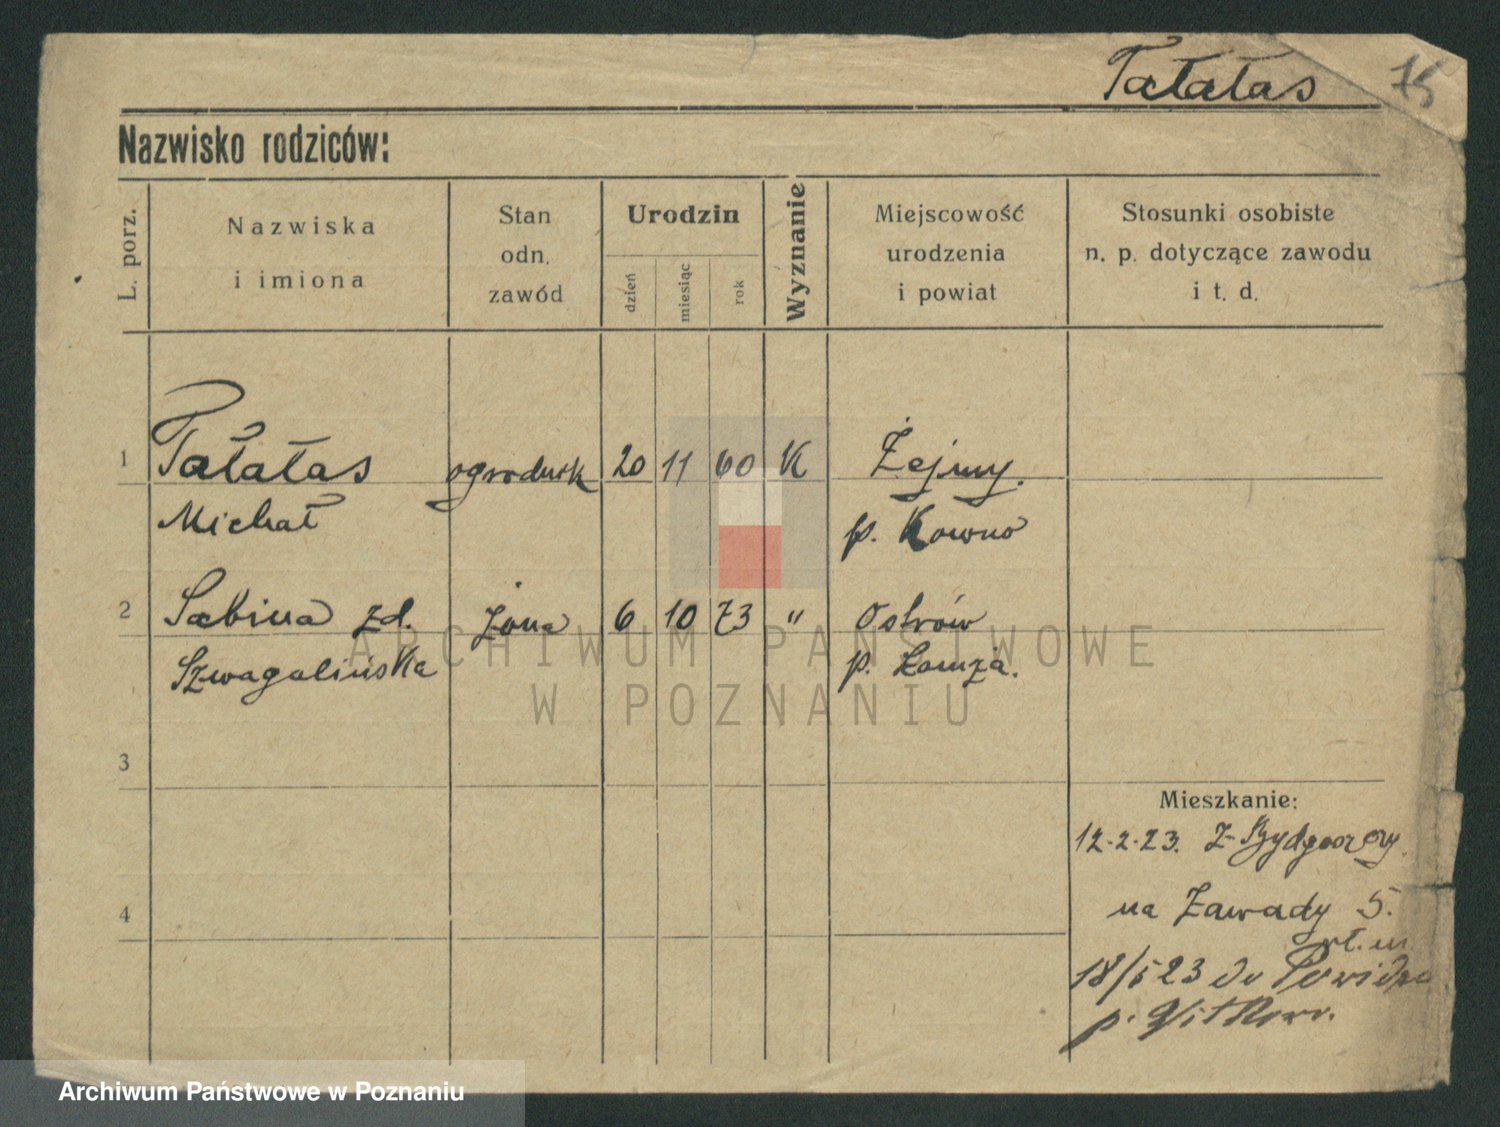 Tałałas 75
Nazwisko rodziców:
L. porz.
Nazwiska
i imiona
Stan
odn.
zawód
Urodzin
dzień
miesiąc
rok
Wyznanie
Miejscowość
urodzenia
i powiat
Stosunki osobiste
n. p. dotyczące zawodu
i t. d.
1 Tałałas ogrodnik 20 11 60 K Żejmy.
Michał p. Kowno
2 Sabina zd. żona 6 10 73 " Ostrów
Szwagalińska p. Łomża.
3
Mieszkanie:
12.2.23. Z Bydgoszczy
4
na Zawady 5.
wł. m.
18/5 23 do Powidza
p. Witkowo.
ARCHIWUM PAŃSTWOWE
W POZNANIU
Archiwum Państwowe w Poznaniu